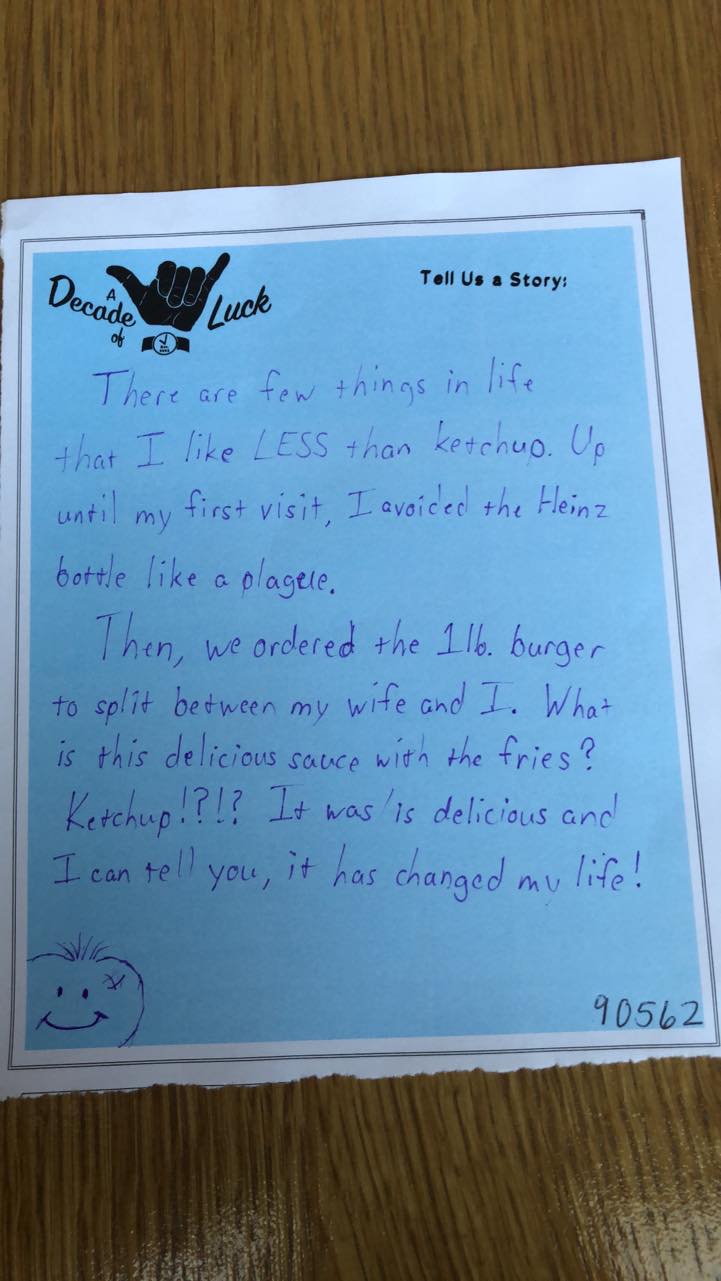 A Decade of Luck
Tell Us a Story:
There are few things in life
that I like LESS than ketchup. Up
until my first visit, I avoided the Heinz
bottle like a plague.
Then, we ordered the 1lb. burger
to split between my wife and I. What
is this delicious sauce with the fries?
Ketchup!?!? It was/is delicious and
I can tell you, it has changed my life!
90562